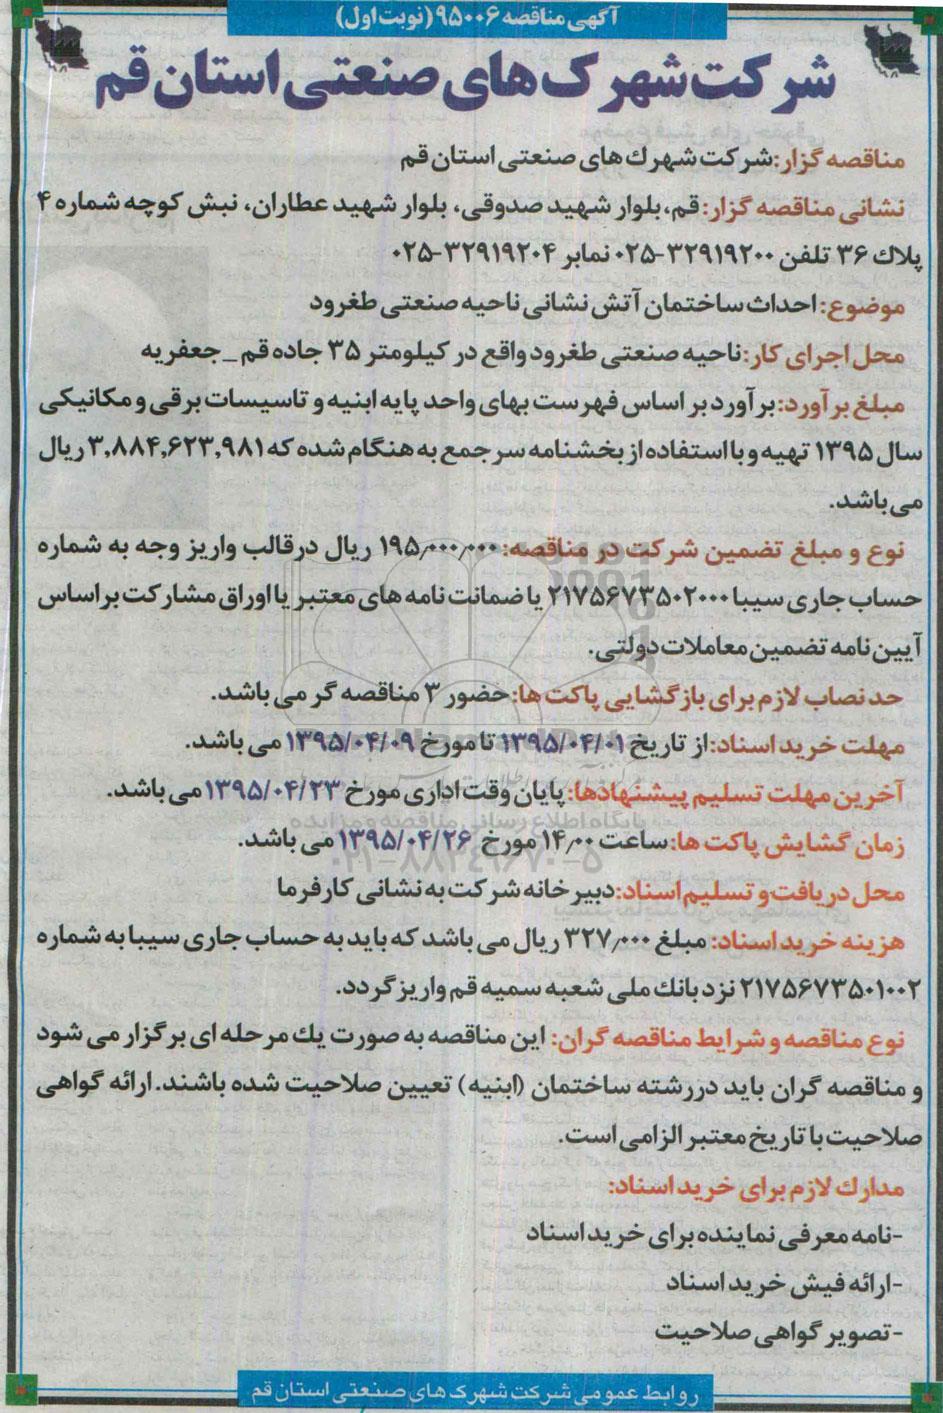 آگهی مناقصه ۹۵۰۰۶ (نوبت اول)
شرکت شهرک‌های صنعتی استان قم
مناقصه گزار: شرکت شهرك های صنعتی استان قم
نشانی مناقصه گزار: قم، بلوار شهید صدوقی، بلوار شهید عطاران، نبش کوچه شماره ۴
پلاك ۳۶ تلفن ۳۲۹۱۹۲۰۰-۰۲۵ نمابر ۳۲۹۱۹۲۰۴-۰۲۵
موضوع: احداث ساختمان آتش نشانی ناحیه صنعتی طغرود
محل اجرای کار: ناحیه صنعتی طغرود واقع در کیلومتر ۳۵ جاده قم _ جعفریه
مبلغ برآورد: برآورد بر اساس فهرست بهای واحد پایه ابنیه و تاسیسات برقی و مکانیکی
سال ۱۳۹۵ تهیه و با استفاده از بخشنامه سرجمع به هنگام شده که ۳,۸۸۴,۶۲۳,۹۸۱ ریال
می باشد.
نوع و مبلغ تضمین شرکت در مناقصه: ۱۹۵٫۰۰۰٫۰۰۰ ریال درقالب واریز وجه به شماره
حساب جاری سیبا ۲۱۷۵۶۷۳۵۰۲۰۰۰ یا ضمانت نامه های معتبر یا اوراق مشارکت براساس
آیین نامه تضمین معاملات دولتی.
حد نصاب لازم برای بازگشایی پاکت ها: حضور ۳ مناقصه گر می باشد.
مهلت خرید اسناد: از تاریخ ۱۳۹۵/۰۴/۰۱ تا مورخ ۱۳۹۵/۰۴/۰۹ می باشد.
آخرین مهلت تسلیم پیشنهادها: پایان وقت اداری مورخ ۱۳۹۵/۰۴/۲۳ می باشد.
پایگاه اطلاع رسانی مناقصه و مزایده
زمان گشایش پاکت ها: ساعت ۱۴٫۰۰ مورخ ۱۳۹۵/۰۴/۲۶ می باشد.
۰۲۱-۸۸۳۴۹۶۷۰-۵
محل دریافت و تسلیم اسناد: دبیرخانه شرکت به نشانی کارفرما
هزینه خرید اسناد: مبلغ ۳۲۷٫۰۰۰ ریال می باشد که باید به حساب جاری سیبا به شماره
۲۱۷۵۶۷۳۵۰۱۰۰۲ نزد بانك ملی شعبه سمیه قم واریز گردد.
نوع مناقصه و شرایط مناقصه گران: این مناقصه به صورت یك مرحله ای برگزار می شود
و مناقصه گران باید دررشته ساختمان (ابنیه) تعیین صلاحیت شده باشند. ارائه گواهی
صلاحیت با تاریخ معتبر الزامی است.
مدارك لازم برای خرید اسناد:
-نامه معرفی نماینده برای خرید اسناد
-ارائه فیش خرید اسناد
-تصویر گواهی صلاحیت
روابط عمومی شرکت شهرک های صنعتی استان قم